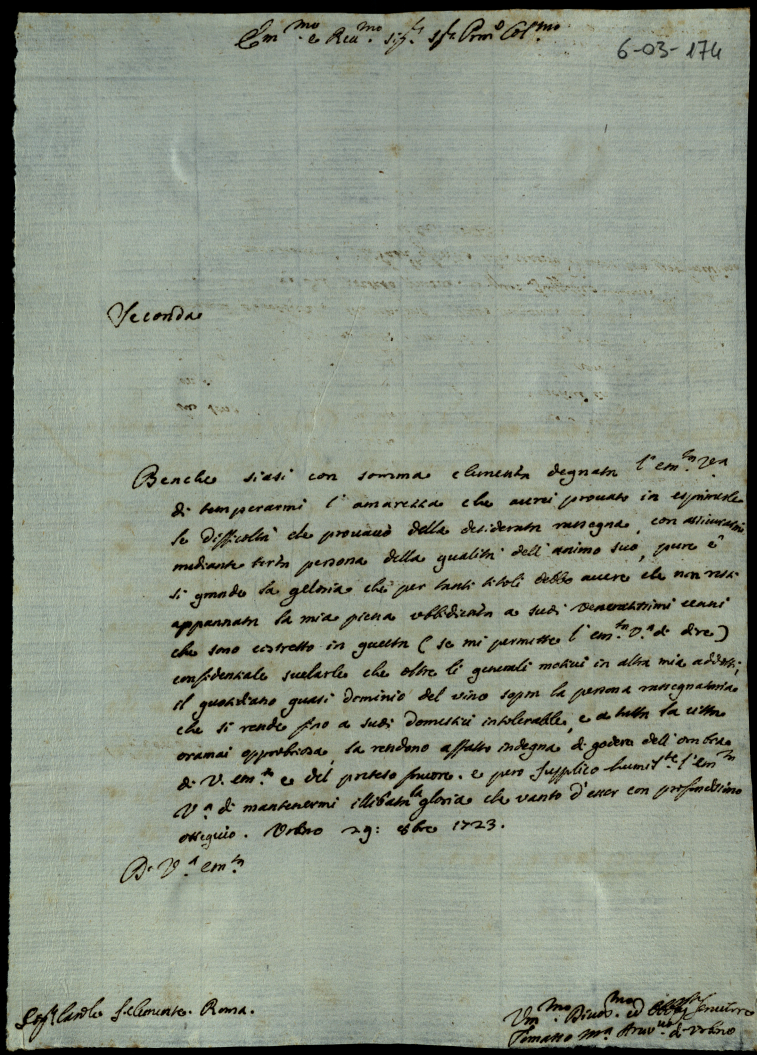 Em.mo e Rev.mo Sig.r Sig.r Pron Col.mo
6-03-174
Seconda
Benche siasi con somma clementa degnata l'em.za Vra
di temperarmi l'amarezza che averei provato in esprimerle
le difficoltà che provavo della desiderata rassegna, con assicurarmi
mediante terza persona della qualità dell'animo suo, pure è
si grande la gelosia che per tanti titoli debbo avere che non resti
appannata la mia piena ubbidienza a suoi veneratissimi cenni
che sono costretto in questa (se mi permette l'em.za V.a di dire)
confidenziale svelarle che oltre li generali motivi in altra mia addotti,
il quotidiano quasi dominio del vino sopra la persona rassegnataria
che si rende fino a suoi domestici intolerabile, e a tutta la città
oramai obbrobriosa, la rendono affatto indegna di godere dell'ombra
di V. em.za e del preteso favore. e però supplico humil.te l'em.za
V.a di mantenermi illibata la gloria che vanto d'esser con profondissimo
ossequio. Urbino 29: 8bre 1723.
Di V.a em.za
Sig.r Card.le S. Clemente. Roma.
Um.mo Divot.mo ed Obblig.mo Servitore
Tomasso M.a Arciv.vo di Urbino